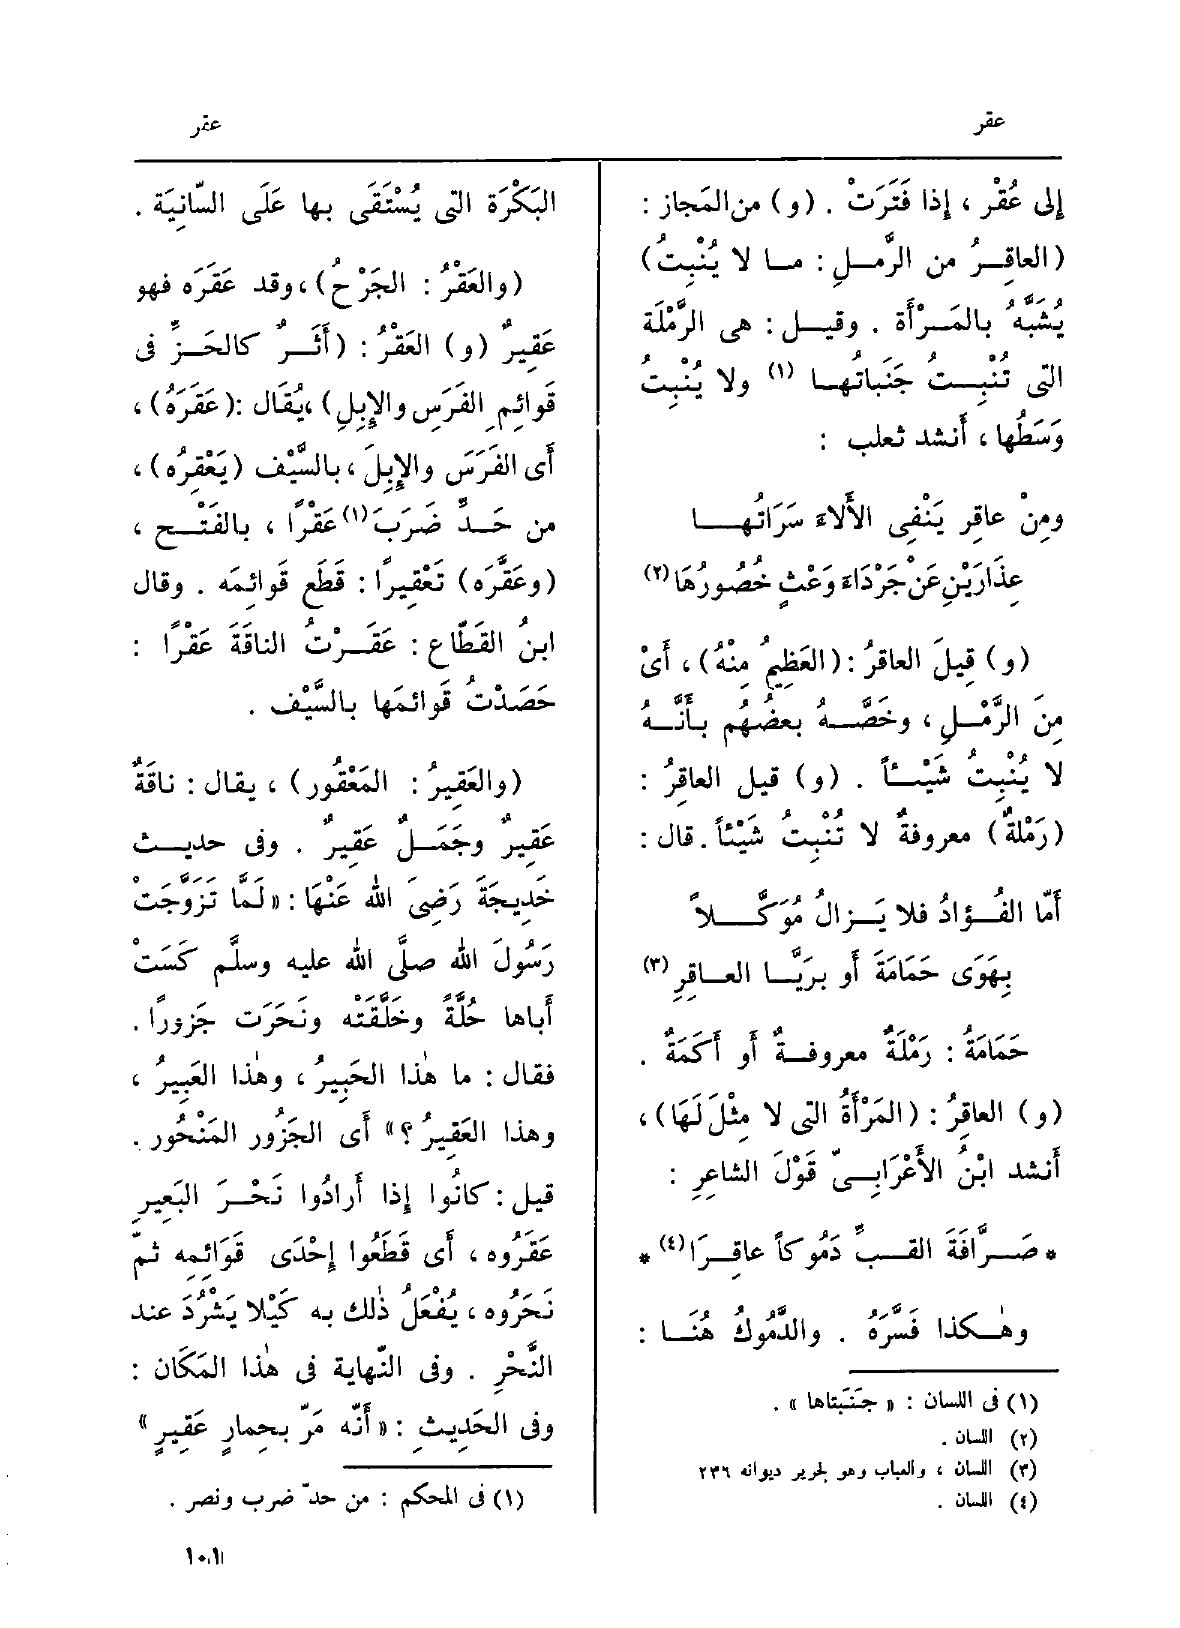 عقر
عقر
إلى عُقْر ، إذا فَتَرَتْ . (و) من المَجاز :
(العاقِرُ من الرَّمل : ما لا يُنْبِتُ)
يُشَبَّهُ بالمَرْأة . وقيل : هى الرَّمْلَة
التى تُنْبِتُ جَنَباتُها (١) ولا يُنْبِتُ
وَسَطُها ، أنشد ثعلب :
ومِنْ عاقِرٍ يَنْفِى الأَلاءَ سَرَاتُها
عِذَارَيْنِ عَنْ جَرْدَاءَ وَعْثٍ خُصُورُهَا (٢)
(و) قِيلَ العاقرُ : (العَظِيمُ مِنْهُ) ، أَىْ
مِنَ الرَّمْلِ ، وخَصَّهُ بعضُهُم بأَنَّهُ
لا يُنْبِتُ شَيْئاً . (و) قيل العاقِرُ :
(رَمْلةٌ) معروفةٌ لا تُنْبِتُ شَيْئاً . قال :
أَمّا الفُؤادُ فلا يَزالُ مُوَكَّلاً
بِهَوَى حَمَامَةَ أو بِرَيَّا العاقِرِ (٣)
حَمَامَةُ : رَمْلَةٌ معروفةٌ أو أَكَمَةٌ .
(و) العاقِرُ : (المَرْأَةُ التى لا مِثْلَ لَهَا) ،
أنشد ابْنُ الأَعْرَابِىّ قَوْلَ الشاعِرِ :
* صَرَّافَةَ القبِّ دَمُوكاً عاقِرَا (٤) *
وهٰكذا فَسَّرَهُ . والدَّمُوكُ هُنَا :
(١) فى اللسان : « جَنَبَتاها » .
(٢) اللسان .
(٣) اللسان ، والعباب وهو لجرير ديوانه ٢٣٦
(٤) اللسان .
البَكْرَة التى يُسْتَقَى بها عَلَى السّانِيَة .
(والعَقْرُ : الجَرْح) ، وقد عَقَرَه فهو
عَقِيرٌ (و) العَقْرُ : (أَثَرٌ كالحَزِّ فى
قوائمِ الفَرَسِ والإِبِلِ) ، يُقَال : (عَقَرَهُ) ،
أَى الفَرَسَ والإِبِلَ ، بالسَّيْفِ (يَعْقِرُه) ،
من حَدِّ ضَرَبَ (١) عَقْرًا ، بالفَتْح ،
(وعَقَّرَه) تَعْقِيرًا : قَطَع قَوائمَه . وقال
ابنُ القَطّاع : عَقَرْتُ الناقَةَ عَقْرًا :
حَصَدْتُ قَوائمَها بالسَّيْف .
(والعَقِيرُ : المَعْقُور) ، يقال : ناقَةٌ
عَقِيرٌ وجَمَلٌ عَقِيرٌ . وفى حديث
خَدِيجَةَ رَضِىَ اللهُ عَنْهَا : « لَمَّا تَزَوَّجَتْ
رَسُولَ الله صلَّى الله عليه وسلَّم كَسَتْ
أَباها حُلَّةً وخَلَّقَتْه ونَحَرَت جَزورًا .
فقال : ما هٰذا الحَبِيرُ ، وهٰذا العَبِيرُ ،
وهذا العَقِيرُ ؟ » أى الجَزُور المَنْحُور .
قيل : كانُوا إذا أَرادُوا نَحْرَ البَعِيرِ
عَقَرُوه ، أَى قَطَعُوا إِحْدَى قَوَائِمِه ثمّ
نَحَرُوه ، يُفْعَلُ ذٰلك به كَيْلا يَشْرُدَ عند
النَّحْرِ . وفى النّهاية فى هٰذا المَكَان :
وفى الحَدِيثِ : « أَنّه مَرّ بحِمارٍ عَقِيرٍ »
(١) فى المحكم : من حدّ ضرب ونصر .
١٠١